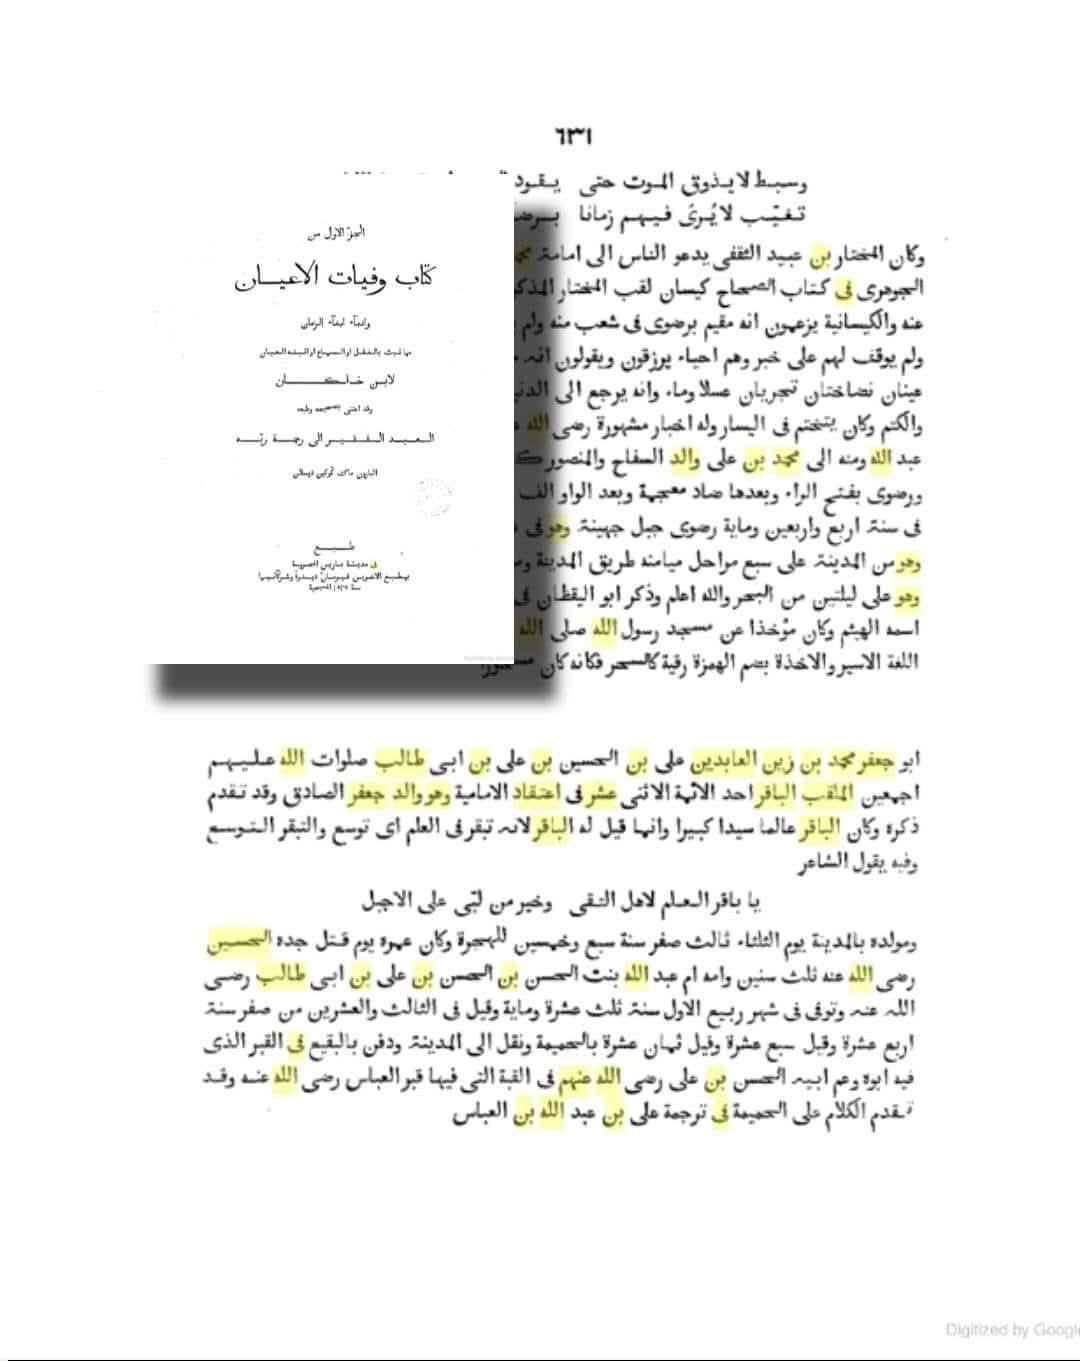 ٦٣١
وسبط لا يذوق الموت حتى يقود
تغيّب لا يُرىَ فيهم زمانا
وكان المختار بن عبيد الثقفى يدعو الناس الى امامة
الجوهرى فى كتاب الصحاح كيسان لقب المختار المذكـ
عنه والكيسانية يزعمون انه مقيم برضوى فى شعب منه ولم
ولم يوقف لهم على خبر وهم احياء يرزقون ويقولون انه
عينان نضاختان تجريان عسلا وماء وانه يرجع الى الدنـ
والكتم وكان يتختم فى اليسار وله اخبار مشهورة رضى الله
عبد الله ومنه الى محمد بن على والد السفاح والمنصور
ورضوى بفتح الراء وبعدها ضاد معجمة وبعد الواو الف
فى سنة اربع واربعين وماية رضوى جبل جهينة وهو فى
وهو من المدينة على سبع مراحل ميامنه طريق المدينة
وهو على ليلتين من البحر والله اعلم وذكر ابو اليقظان فى
اسمه الهيثم وكان مؤخذا عن مسجد رسول الله صلى الله
اللغة الاسير والاخذة بضم الهمزة رقية كالسحر فكانه كان مسحورا
الجزء الاول من
كتاب وفيات الاعيان
وانباء ابناء الزمان
مما ثبت بالنقل او السماع او اثبته العيان
لابن خلكان
وقد اعتنى بتصحيحه وطبعه
العبد الفقير الى رحمة ربّه
البارون ماك كوكين ديسلان
طبع
فى مدينة باريس المحروسة
ابو جعفر محمد بن زين العابدين على بن الحسين بن على بن ابى طالب صلوات الله عليهم
اجمعين الملقب الباقر احد الائمة الاثنى عشر فى اعتقاد الامامية وهو والد جعفر الصادق وقد تقدم
ذكره وكان الباقر عالما سيدا كبيرا وانما قيل له الباقر لانه تبقر فى العلم اى توسع والتبقر التوسع
وفيه يقول الشاعر
يا باقر العلم لاهل التقى وخير من لبّى على الاجبل
ومولده بالمدينة يوم الثلثاء ثالث صفر سنة سبع وخمسين للهجرة وكان عمره يوم قتل جده الحسين
رضى الله عنه ثلث سنين وامه ام عبد الله بنت الحسن بن الحسن بن على بن ابى طالب رضى
الله عنه وتوفى فى شهر ربيع الاول سنة ثلث عشرة وماية وقيل فى الثالث والعشرين من صفر سنة
اربع عشرة وقيل سبع عشرة وقيل ثمان عشرة بالحميمة ونقل الى المدينة ودفن بالبقيع فى القبر الذى
فيه ابوه وعم ابيه الحسن بن على رضى الله عنهم فى القبة التى فيها قبر العباس رضى الله عنه وقد
تقدم الكلام على الحميمة فى ترجمة على بن عبد الله بن العباس
Digitized by Google